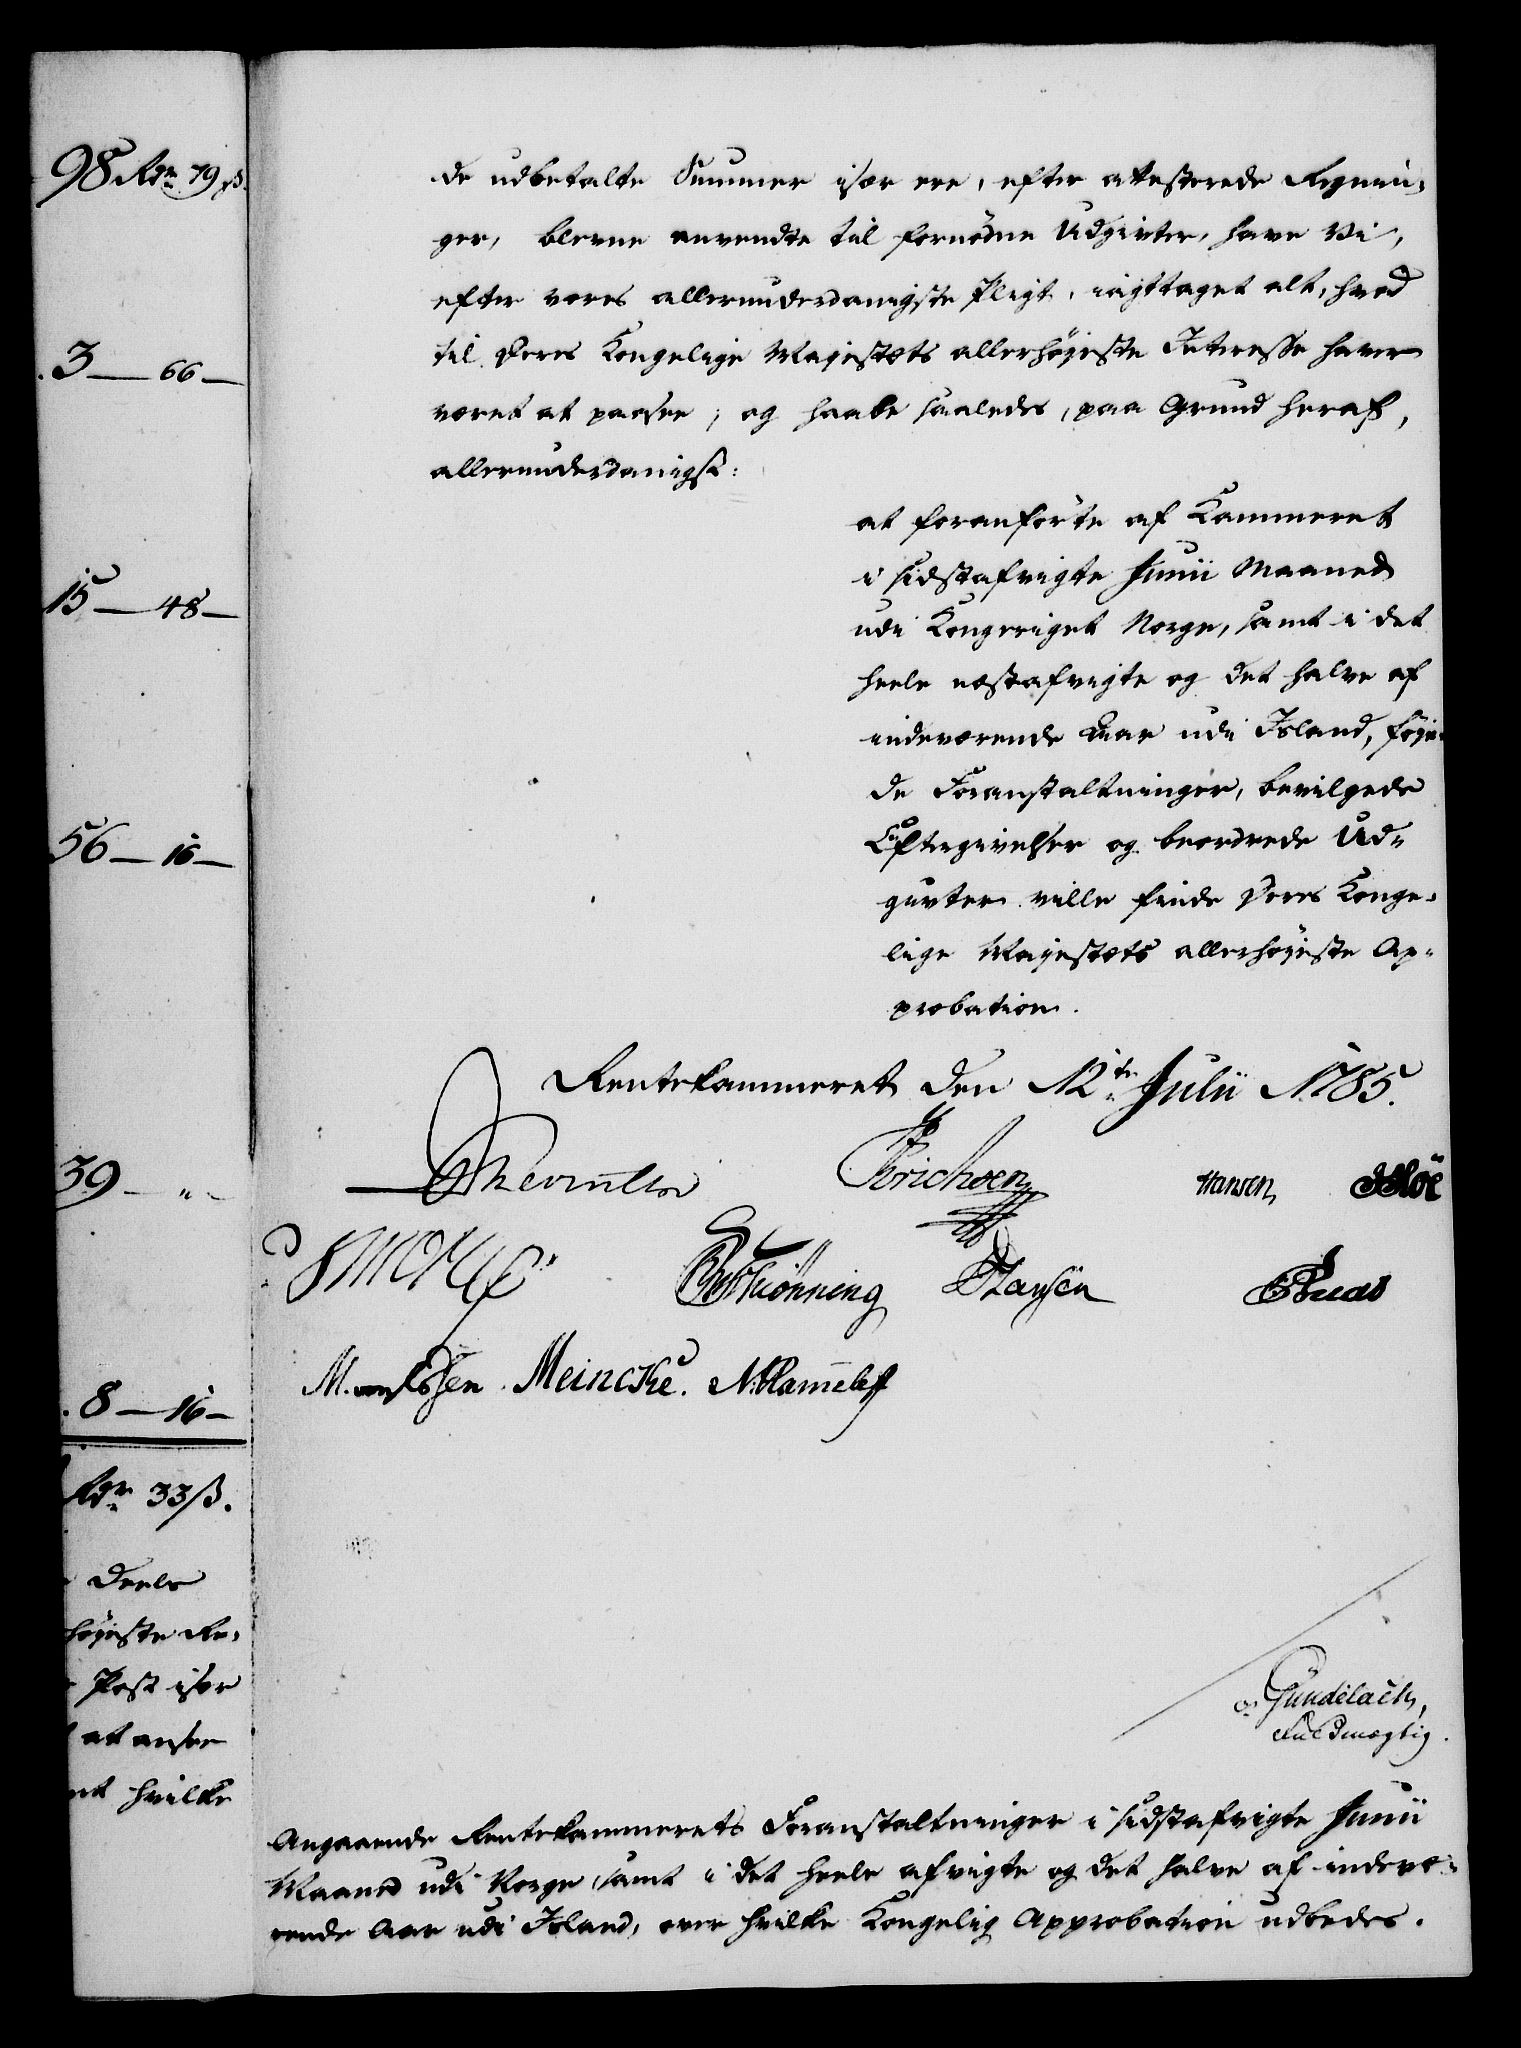 98 Rdr 79 ß.
3 — 66 —
15 — 48 —
56 — 16 —
39 — " —
8 — 16 —
Rdr 33 ß.
Deels
højeste Re-
Post især
at ansee
hvilke
de udbetalte Summer især ere, efter attesterede Regnin-
ger, blevne anvendte til fornødne Udgivter, have Vi,
efter vores allerunderdanigste Pligt, iagttaget alt, hvad
til Deres Kongelige Majestæts allerhøjeste Interesse haver
været at paasee; og haabe saaledes, paa Grund heraf,
allerunderdanigst:
at foranførte af Kammeret
i sidstafvigte Junii Maaned
udi Kongeriget Norge, samt i det
heele næstafvigte og det halve af
indeværende Aar udi Island, føjen-
de Foranstaltninger, bevilgede
Eftergivelser og beordrede Ud-
givter ville finde Deres Konge-
lige Majestæts allerhøjeste Ap-
probation.
Rentekammeret den 12te Julii 1785.
Erichsen Hansen
Thønning Hansen
Meincke.
Gundelach,
Fuldmægtig.
Angaaende Rentekammerets Foranstaltninger i sidstafvigte Junii
Maaned udi Norge, samt i det heele afvigte og det halve af indevæ-
rende Aar udi Island, over hvilke Kongelig Approbation udbedes.